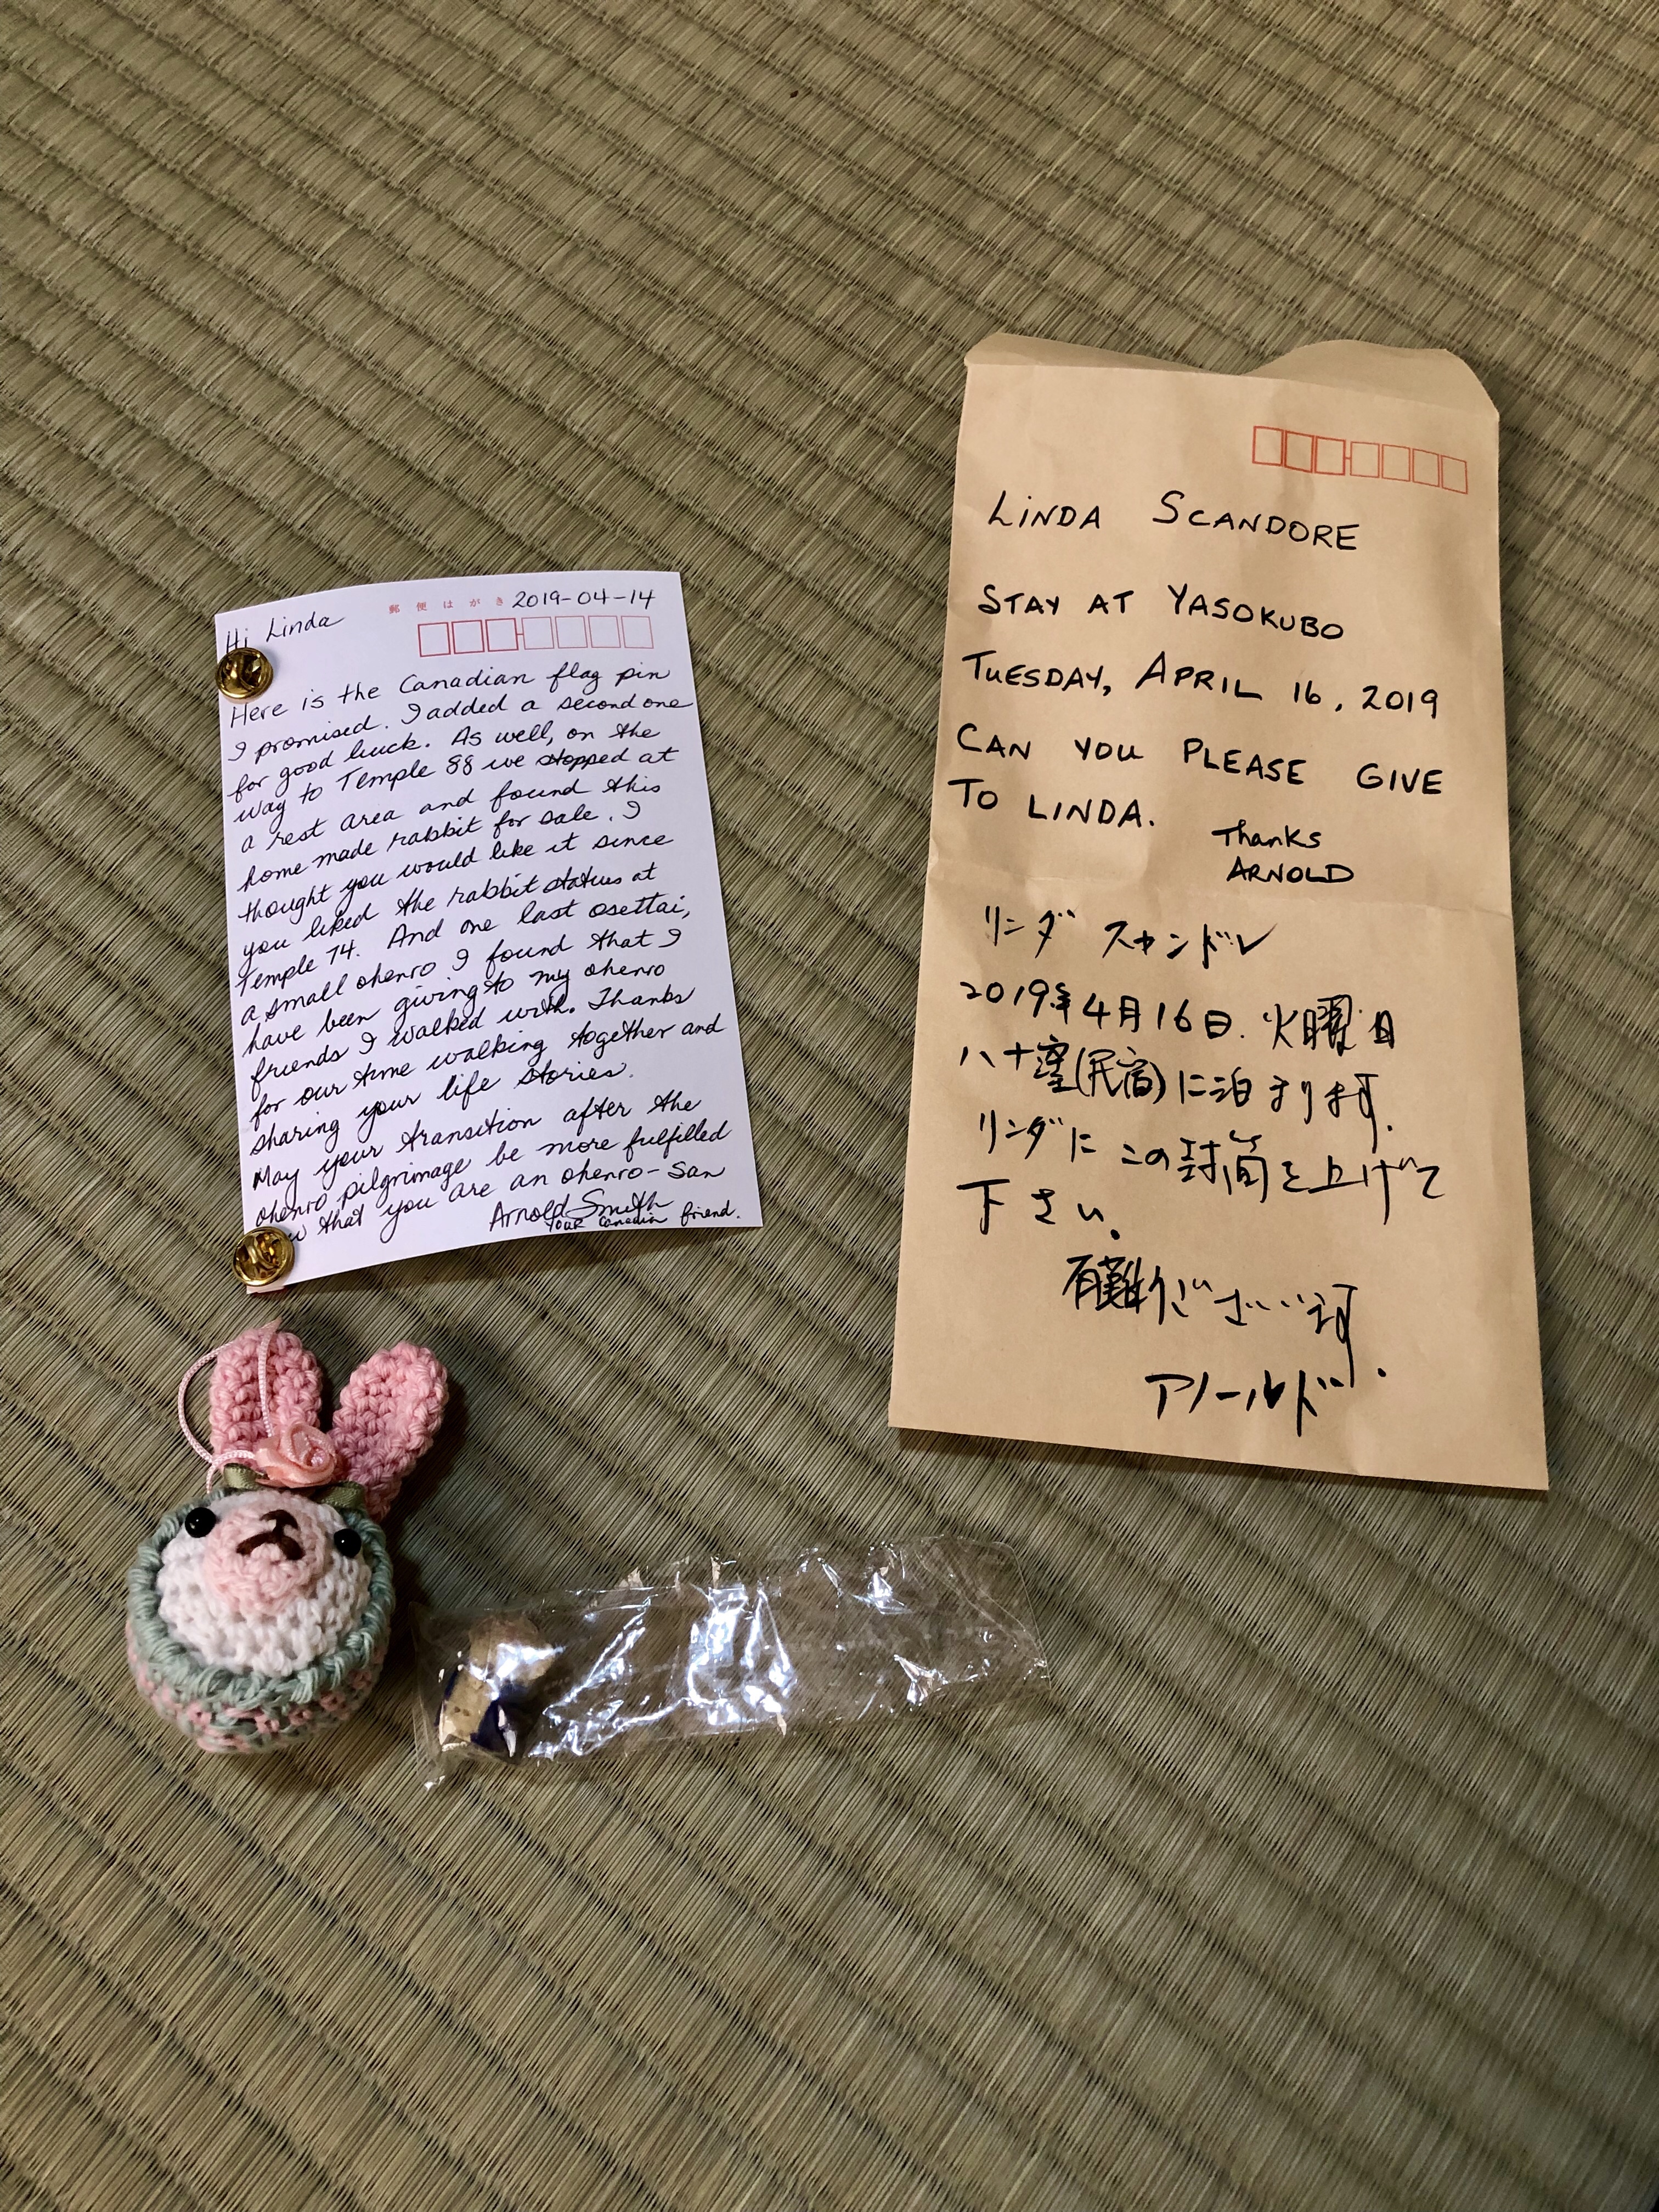 郵便はがき 2019-04-14
Hi Linda
Here is the Canadian flag pin
I promised. I added a second one
for good luck. As well, on the
way to Temple 88 we stopped at
a rest area and found this
home made rabbit for sale. I
thought you would like it since
you liked the rabbit status at
Temple 74. And one last osettai,
a small ohenro I found that I
have been giving to my ohenro
friends I walked with. Thanks
for our time walking together and
sharing your life stories.
May your transition after the
ohenro pilgrimage be more fulfilled
that you are an ohenro-san
Arnold Smith
Your Canadian friend.
LINDA SCANDORE
STAY AT YASOKUBO
TUESDAY, APRIL 16, 2019
CAN YOU PLEASE GIVE
TO LINDA.
Thanks
ARNOLD
リンダ スキャンドレ
2019年4月16日. 火曜日
八十窪(民宿)に泊まります.
リンダに この封筒を上げて
下さい。
有難うございます.
アノールド